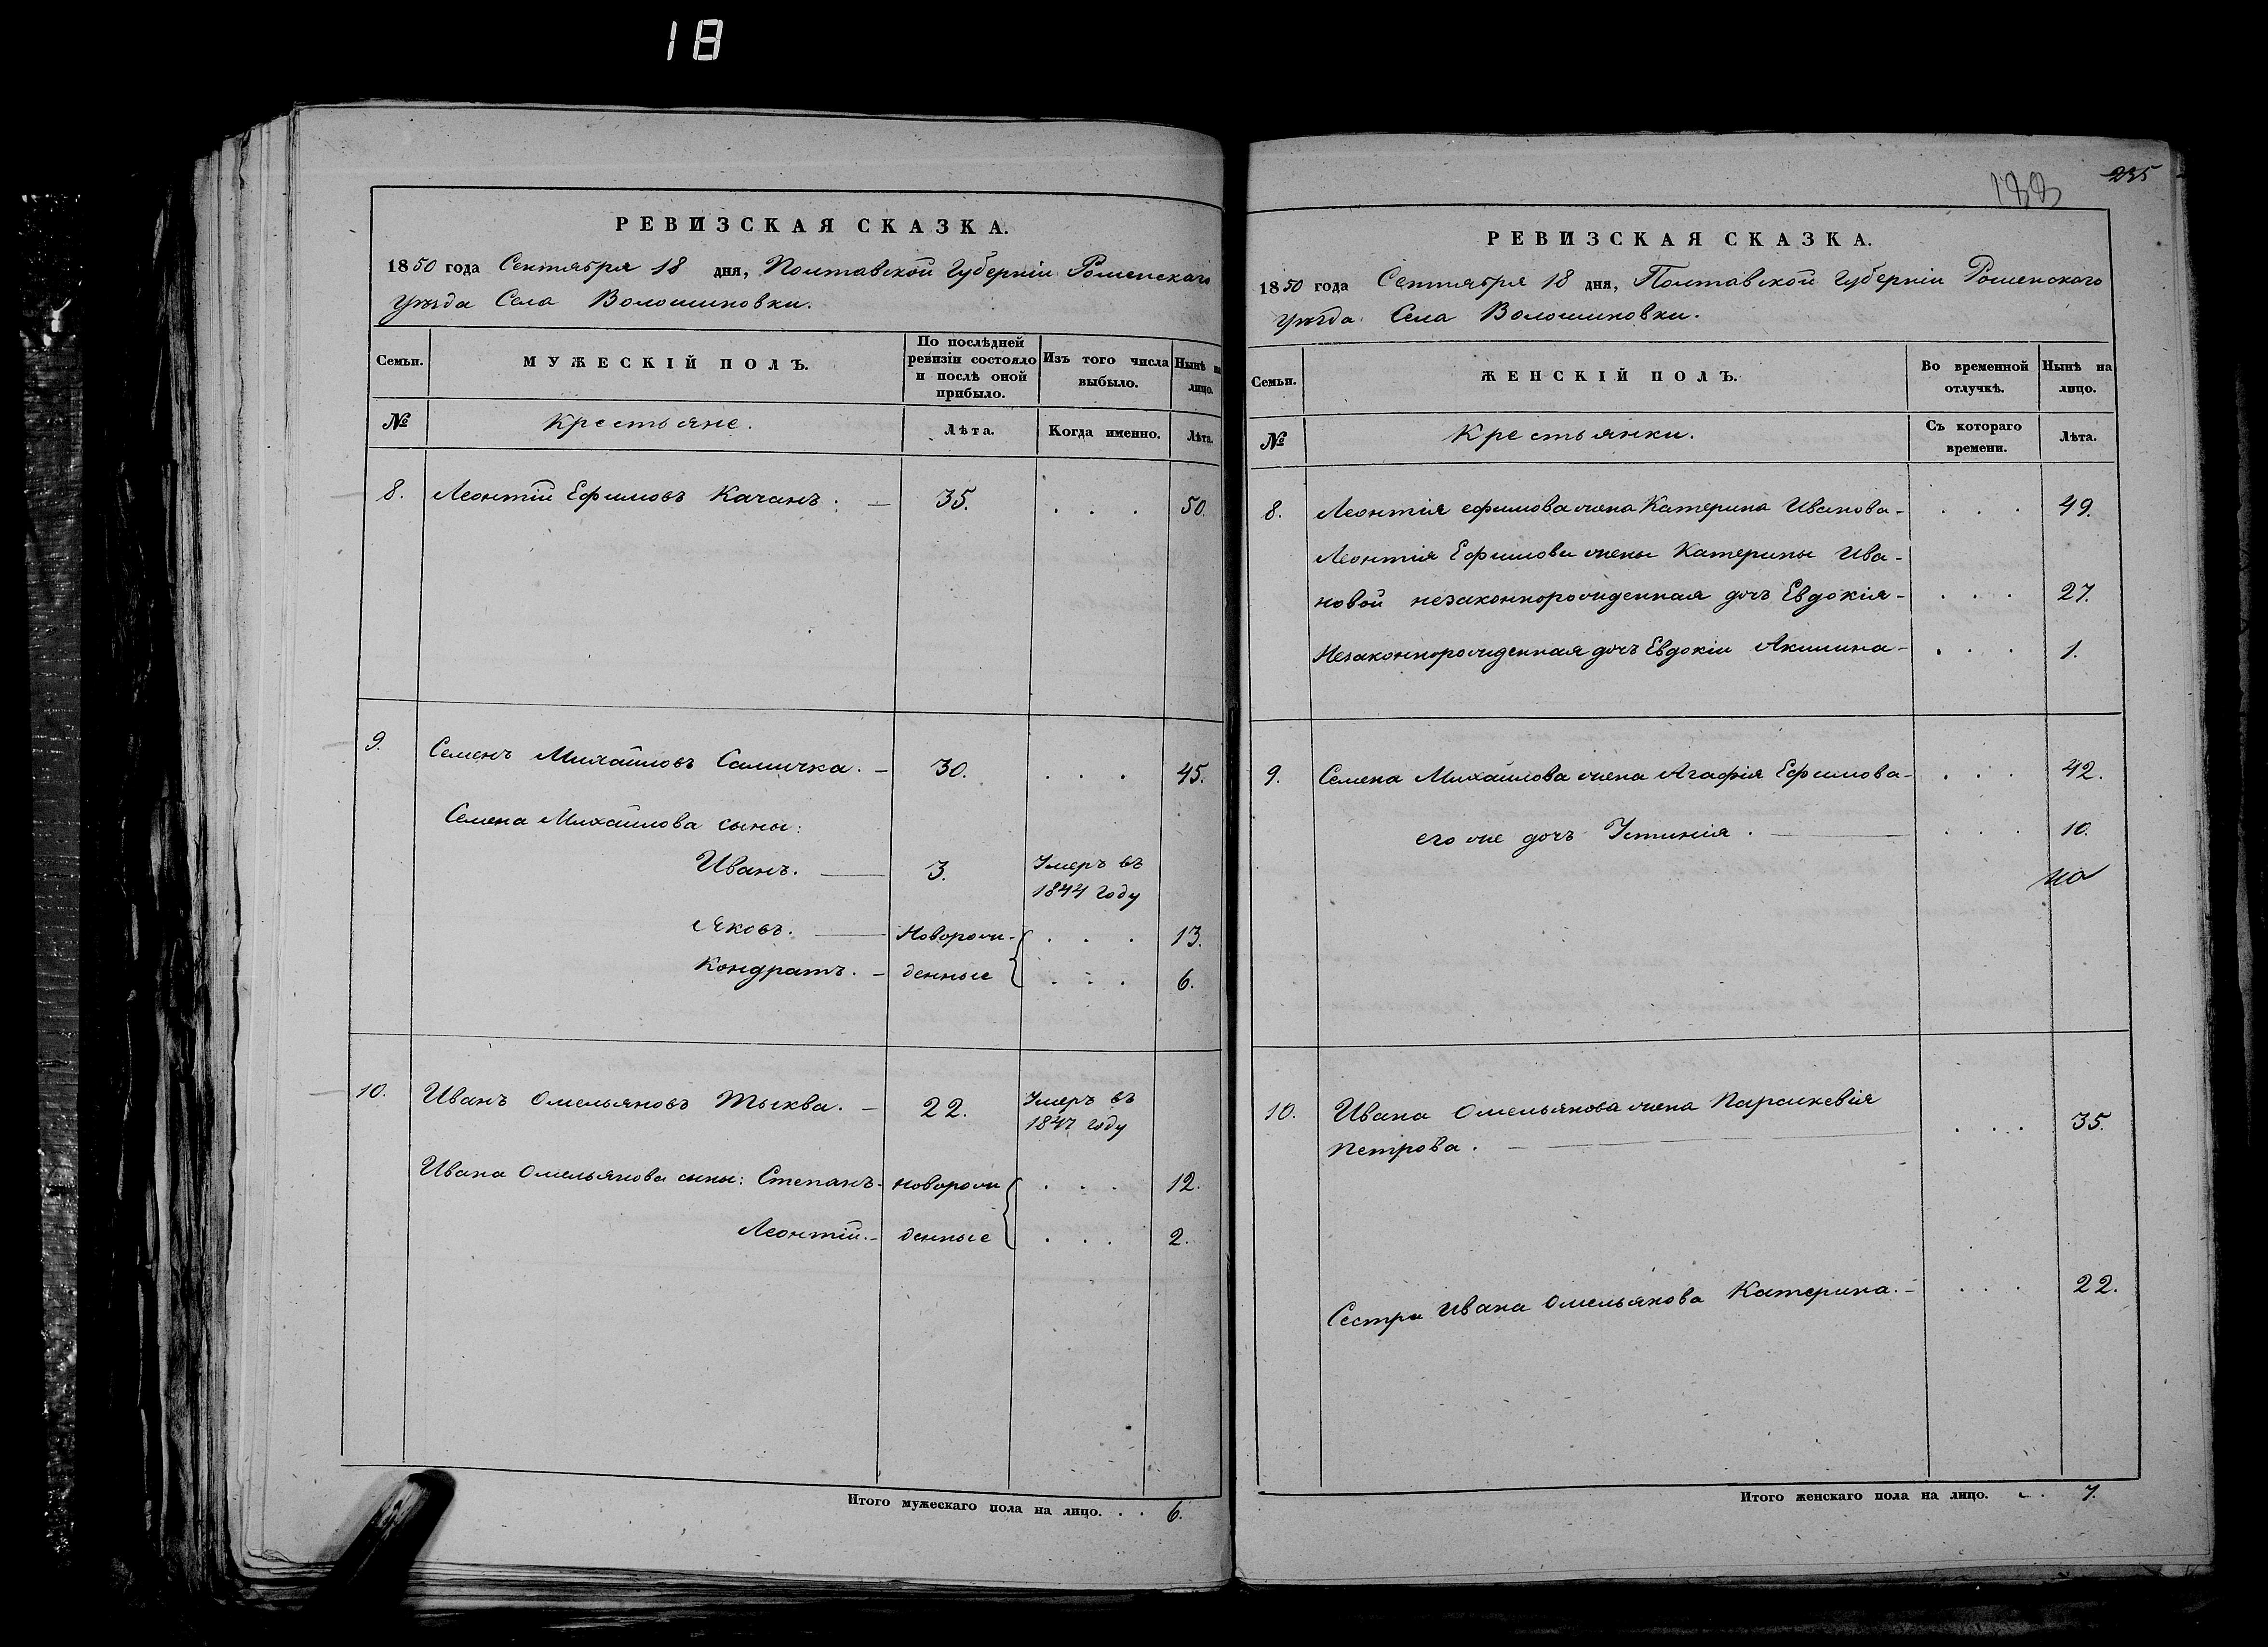 18
РЕВИЗСКАЯ СКАЗКА.
1850 года Сентября 18 дня, Полтавской Губерніи Роменскаго
уѣзда Села Волошиновки.
Семьи. МУЖЕСКІЙ ПОЛЪ. По послѣдней ревизіи состояло и послѣ оной прибыло. Изъ того числа выбыло. Нынѣ на лицо.
№ Крестьяне. Лѣта. Когда именно. Лѣта.
8. Леонтій Ефимовъ Качанъ. — 35. . . . 50.
9. Семенъ Михайловъ Саличка. — 30. . . . 45.
Семена Михайлова сыны:
Иванъ. — 3. Умеръ въ
1844 году
Яковъ. — Новорож- . . . 13.
Кондратъ. — денные . . . 6.
10. Иванъ Омельяновъ Тыква. — 22. Умеръ въ
1847 году
Ивана Омельянова сыны: Степанъ - новорож . . . 12.
Леонтій. - денные . . . 2.
Итого мужескаго пола на лицо. . . 6.
188 235
РЕВИЗСКАЯ СКАЗКА.
1850 года Сентября 18 дня, Полтавской Губерніи Роменского
уѣзда Села Волошиновки.
Семьи. ЖЕНСКІЙ ПОЛЪ. Во временной отлучкѣ. Нынѣ на лицо.
№ Крестьянки. Съ котораго времени. Лѣта.
8. Леонтія ефимова жена Катерина Иванова - . . . 49.
Леонтія Ефимова жены Катерины Ива-
новой незаконнорожденная дочъ Евдокія - . . . 27.
Незаконнорожденная дочъ Евдокіи Акилина - . . . 1.
9. Семена Михайлова жена Агафія Ефимова - . . . 42.
его же дочъ Устинія. — . . . 10.
10. Ивана Омельянова жена Параскевія
Петрова. — . . . 35.
Сестра Ивана Омельянова Катерина. - . . . 22.
Итого женскаго пола на лицо. . . 7.